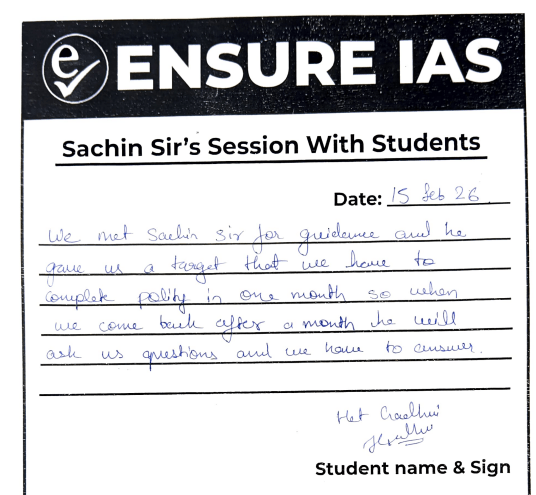 ENSURE IAS
Sachin Sir's Session With Students
Date: 15 Feb 26.
We met Sachin Sir for guidence and he
gave us a target that we have to
complete polity in one month so when
we come back after a month he will
ask us questions and we have to answer.
Het
Student name & Sign